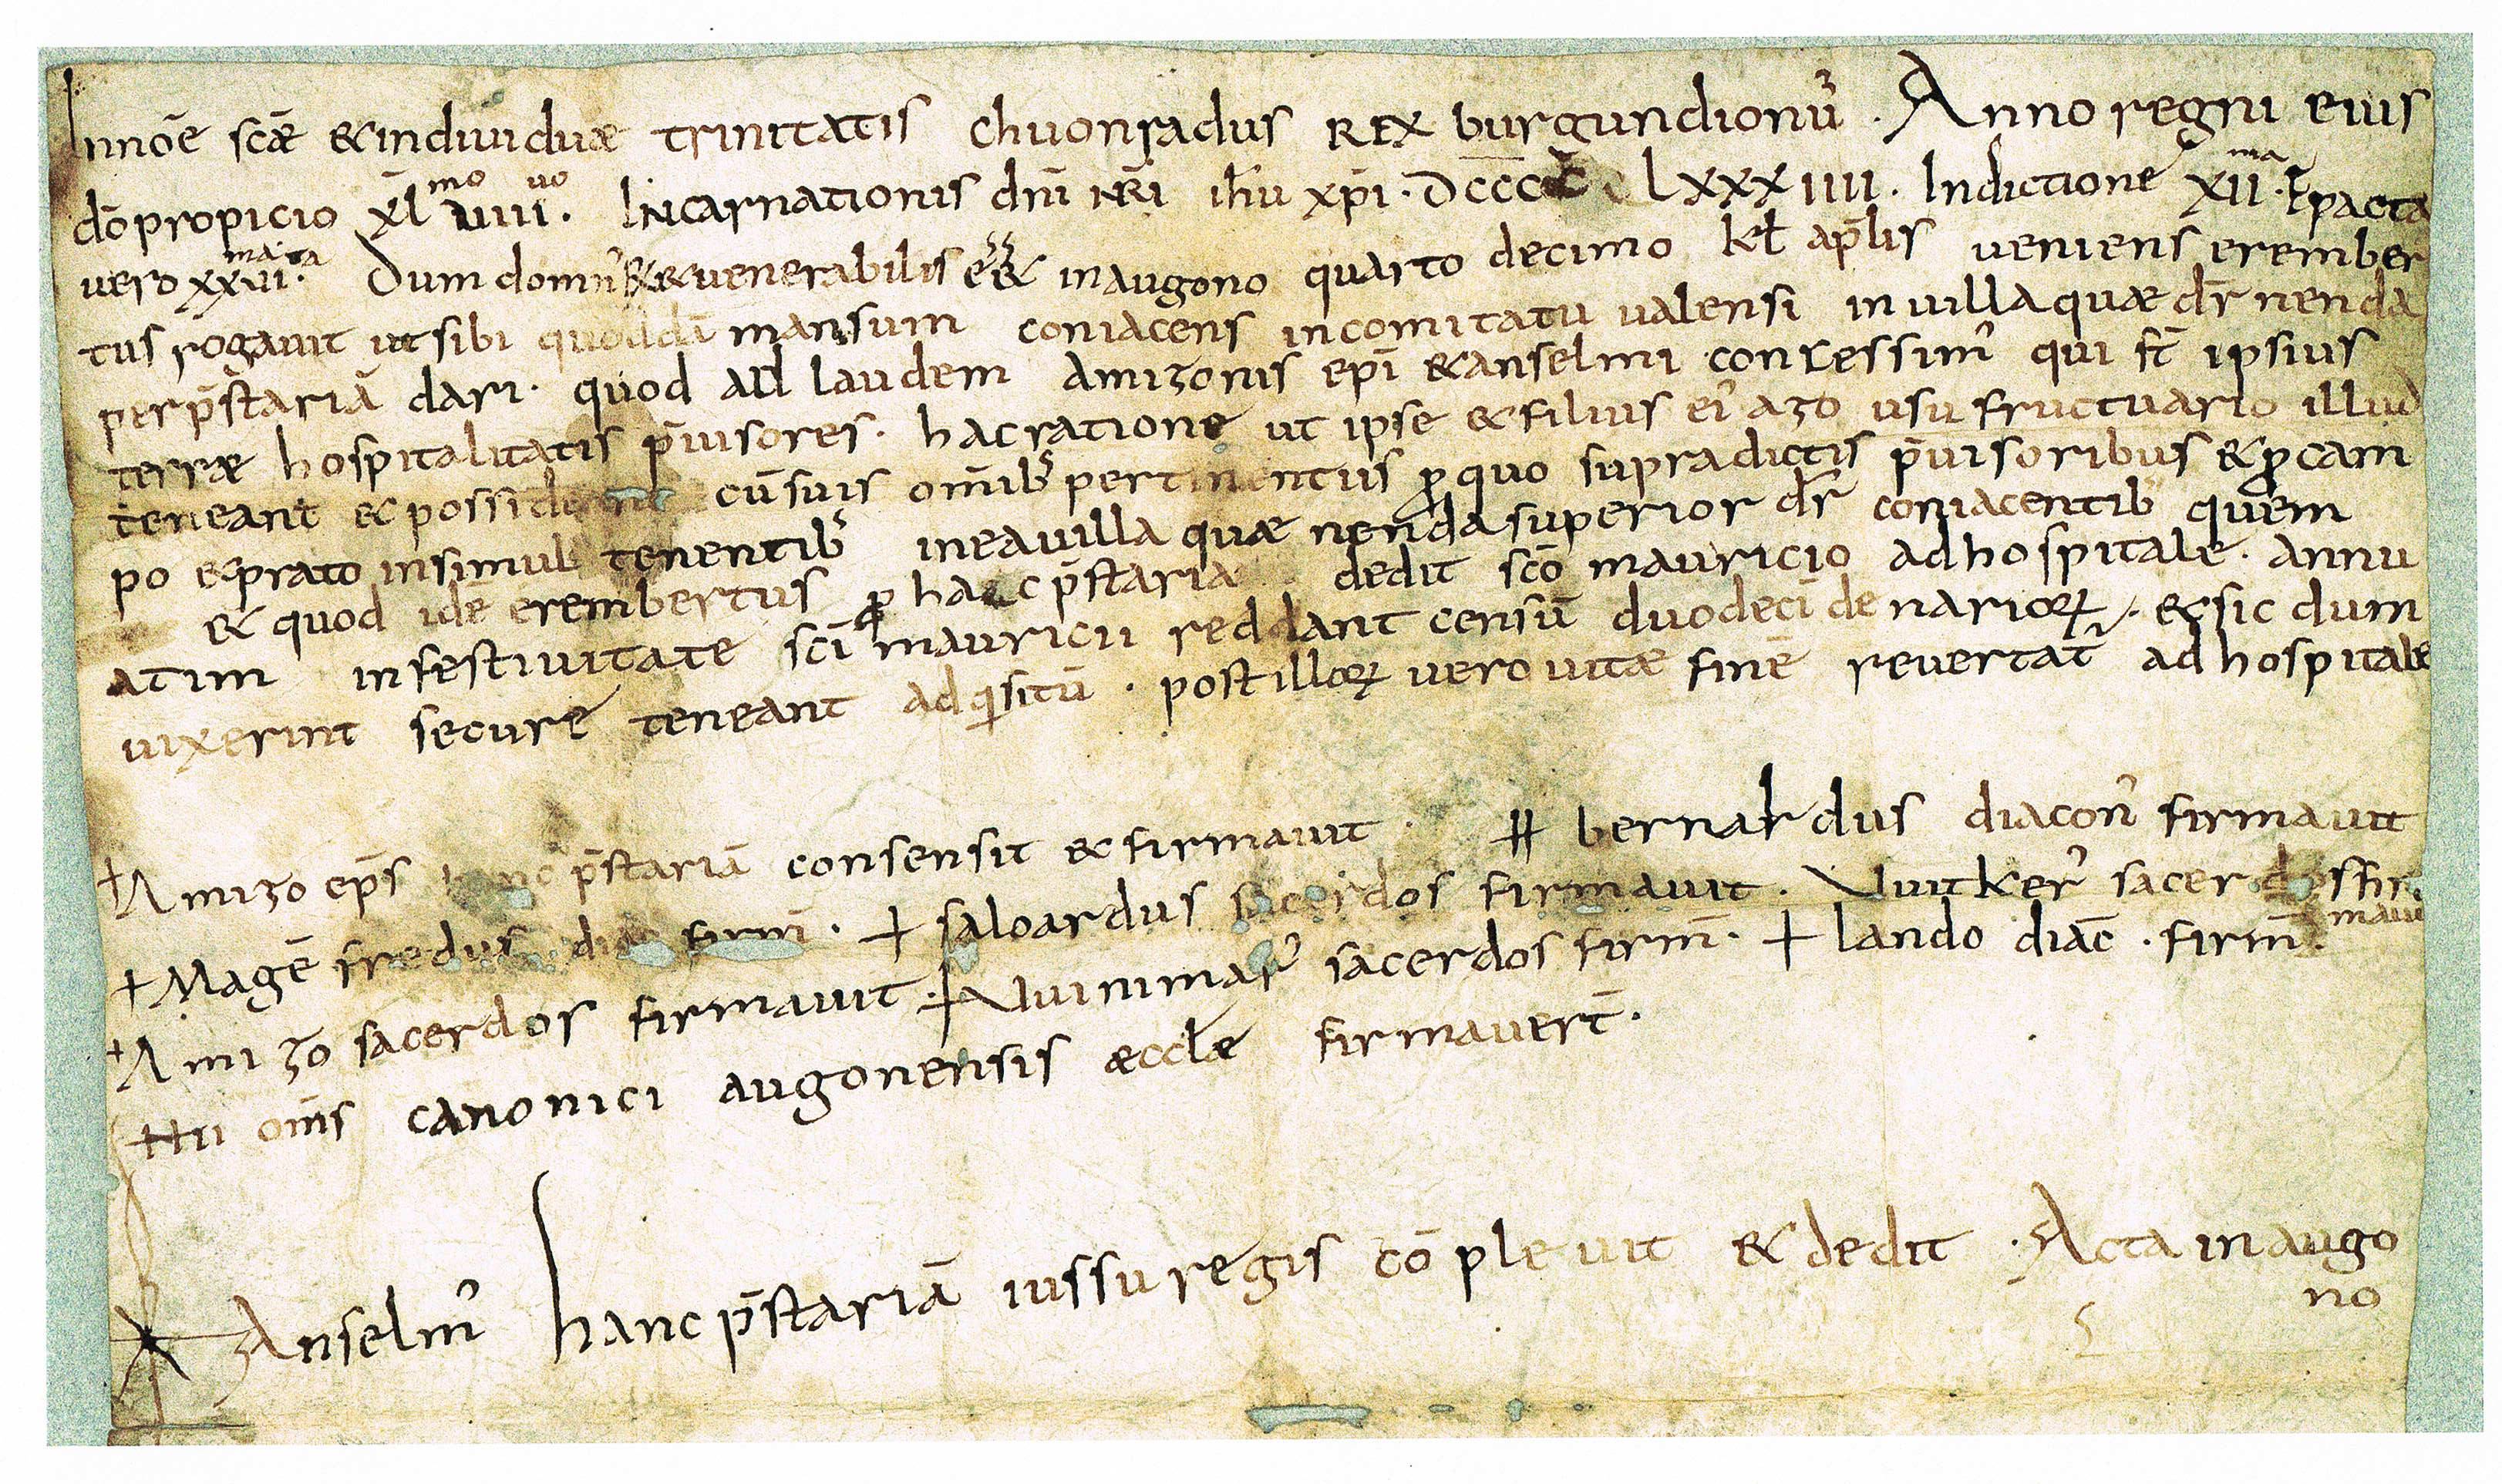 Innoē scǣ & indiuiduæ trinitatis chuonradus REX burgundionū. Anno regni eius
dō propicio xlmo uiiiuo. Incarnationis dn̄i nr̄i ih̄u xp̄i. Dcccc lxxxiiii. Indictione xiima. Epacta
uero xxuima ta. Dum domn' rex & uenerabilis e&#ss& in augono quarto decimo kl ap̄lis ueniens erember
tus rogauit ut sibi quoddā mansum coniacens in comitatu ualensi in uilla quæ dr̄ nenda
per p̄stariā dari. quod ad laudem amizonis ep̄i & anselmi concessim' qui st̄ ipsius
terræ hospitalitatis p̄uisores. hac ratione ut ipse & filius ei' azo usu fructuario illud
teneant & possideant cū suis om̄ib' pertinentiis ꝓ quo supradictis p̄uisoribus & ꝓ cam
po & prato insimul tenentib' in ea uilla quæ nenda superior dr̄ coniacentib' quem
& quod idē erembertus ꝓ hac p̄staria dedit scō mauricio ad hospitale. annu
atim in festiuitate sc̄i mauricii reddant censū duodecī denarioꝝ. & sic dum
uixerint secure teneant adqisitū. post illoꝝ uero uitæ finē reuertat' ad hospitale
+ Amizo ep̄s hanc p̄stariā consensit & firmauit. ǂ bernardus diacon' firmauit
+ Magēfredus diac firm̄. + saloardus sacerdos firmauit. Vuitker' sacerdos fir
mauit
+ Amizo sacerdos firmauit. + Vuinimar' sacerdos firm̄. + lando diac̄. firm̄.
Hii om̄s canonici augonensis æcclæ firmauert̄.
Anselm' hanc p̄stariā iussu regis cōpleuit & dedit. Acta in augo
no